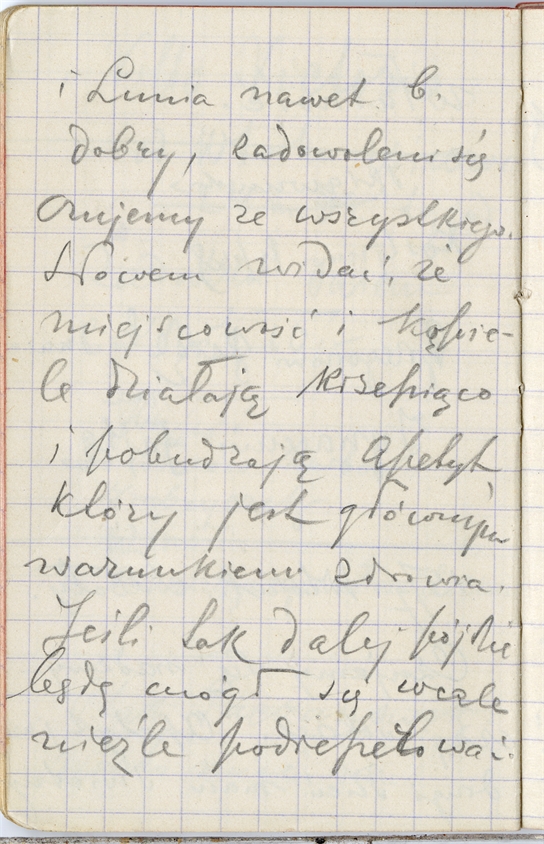 i Lunia nawet b.
dobry, zadowoleni się
czujemy ze wszystkiego.
Słowem widać, że
miejscowość i kąpie-
le działają krzepiąco
i pobudzają apetyt,
który jest głównym
warunkiem zdrowia.
Jeśli tak dalej pójdzie
będę mógł się wcale
nieźle podreperować.